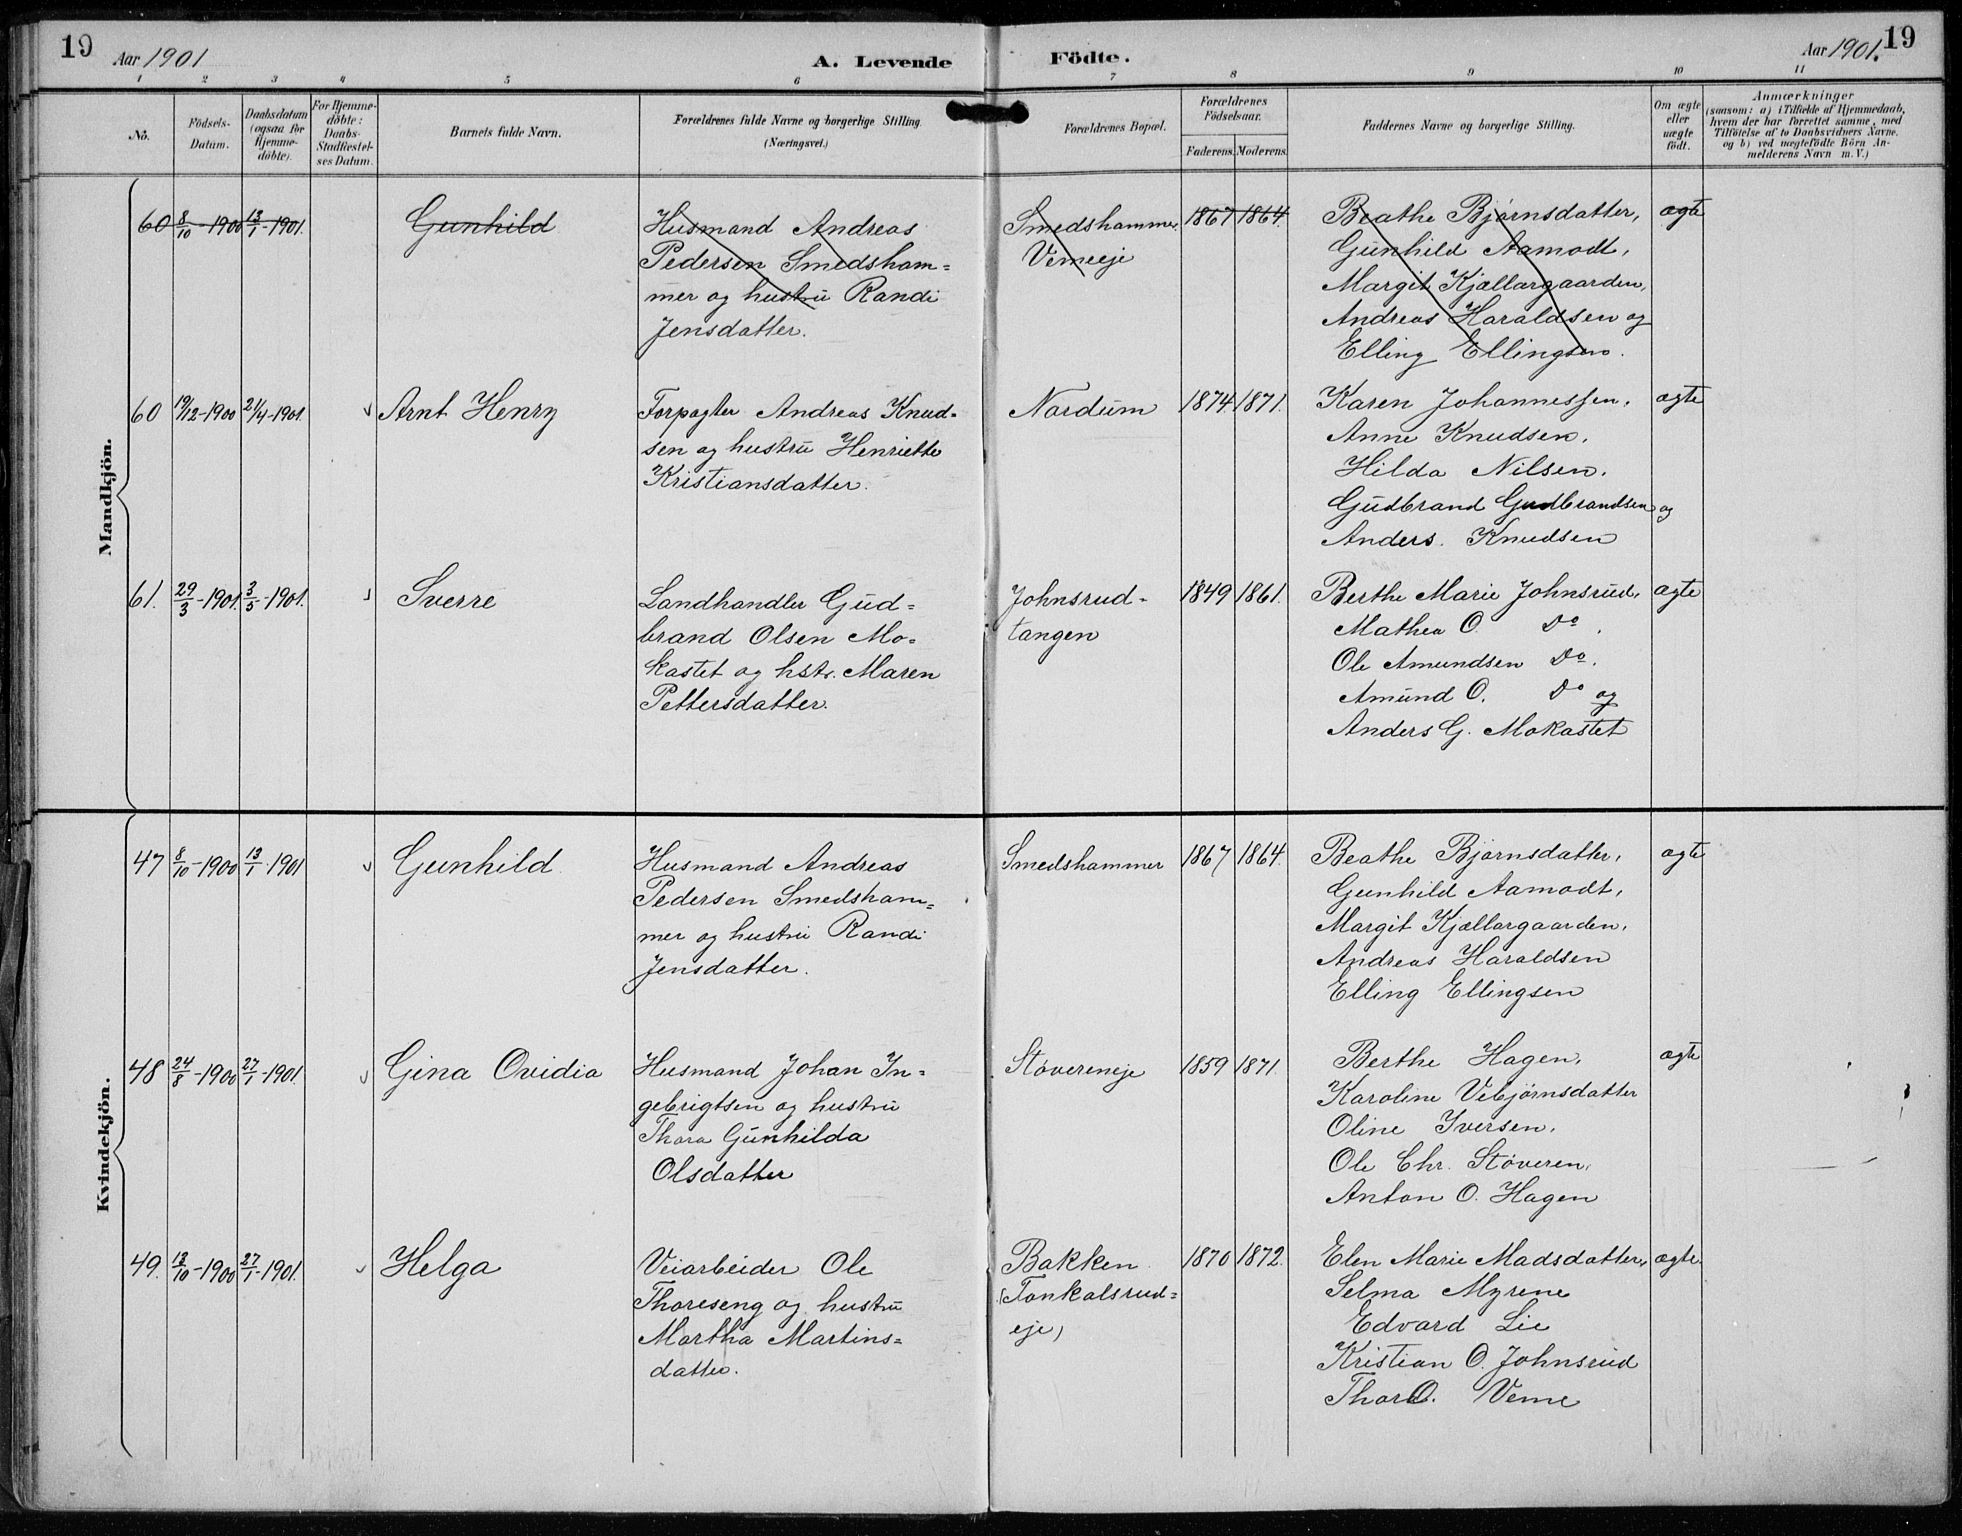 19
Aar 1901
A. Levende Födte.
Aar 1901.
19
1 2 3 4 5 6 7 8 9 10 11
No.
Födsels-Datum.
Daabsdatum (ogsaa for Hjemme-döbte).
For Hjemme-döbte: Daabs-Stadfæstel-ses Datum.
Barnets fulde Navn.
Forældrenes fulde Navne og borgerlige Stilling. (Næringsvei.)
Forældrenes Bopæl.
Forældrenes Födselsaar.
Faderens. Moderens.
Faddernes Navne og borgerlige Stilling.
Om ægte eller uægte födt.
Anmærkninger
(saasom: a) i Tilfælde af Hjemmedaab,
hvem der har forrettet samme, med
Tilföielse af to Daabsvidners Navne.
og b) ved uægtefödte Börn An-
melderens Navn m. V.)
Mandkjön.
60 8/10-1900 13/1-1901. Gunhild Husmand Andreas Smedshammer, 1867 1864. Beathe Bjørnsdatter, ægte
Pedersen Smedsham= Vemeeje Gunhild Aamodt,
mer og hustru Randi Margit Kjællargaarden,
Jensdatter. Andreas Haraldsen og
Elling Ellingsen.
60 19/12-1900 21/4-1901. Arnt Henry Forpagter Andreas Knud= Nordum 1874 1871. Karen Johannessen, ægte
sen og hustru Henriette Anne Knudsen,
Kristiansdatter. Hilda Nilsen,
Gudbrand Gudbrandsen og
Anders Knudsen
61. 29/3-1901. 3/5-1901. Sverre Landhandler Gud= Johnsrud- 1849 1861. Berthe Marie Johnsrud, ægte
brand Olsen Mo= tangen Mathea O. Do.
kastet og hstr. Maren Ole Amundsen Do.
Pettersdatter. Amund O. Do og
Anders G. Mokastet
Kvindekjön.
47 8/10-1900 13/1-1901 Gunhild Husmand Andreas Smedshammer 1867 1864. Beathe Bjørnsdatter, ægte
Pedersen Smedsham= Gunhild Aamodt,
mer og hustru Randi Margit Kjællargaarden,
Jensdatter. Andreas Haraldsen
Elling Ellingsen
48 24/8-1900 27/1-1901. Gina Ovidia Husmand Johan In= Støvereneje 1859 1871. Berthe Hagen, ægte
gebrigtsen og hustru Karoline Vebjørnsdatter
Thora Gunhilda Oline Iversen,
Olsdatter Ole Chr. Støveren,
Anton O. Hagen
49. 13/10-1900 27/1-1901. Helga Veiarbeider Ole Bakken 1870 1872. Elen Marie Madsdatter, ægte.
Thoreseng og hustru (Tonkalsrud= Selma Myrene
Martha Martins= eje) Edvard Lie
datter. Kristian O. Johnsrud
Thor O. Veme